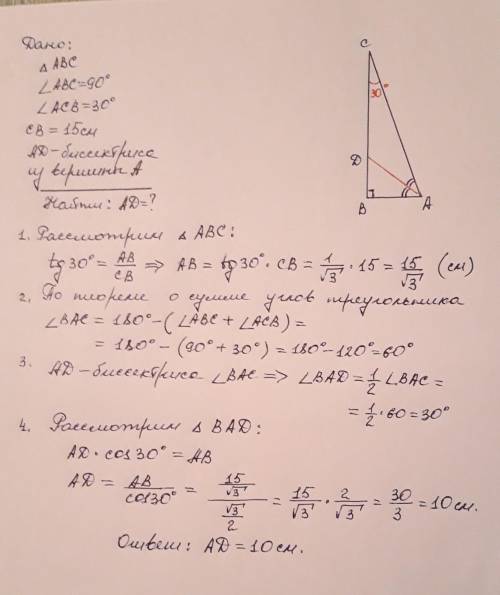 Дано:
△ ABC
∠ABC=90°
∠ACB=30°
CB = 15см
AD – биссектриса
из вершины A
Найти: AD=?
C
30°
D
B
A
1. Рассмотрим △ ABC:
tg30° = AB/CB ⇒ AB = tg30° · CB = 1/√3 · 15 = 15/√3 (см)
2. По теореме о сумме углов треугольника
∠BAC = 180° – (∠ABC + ∠ACB) =
= 180° – (90° + 30°) = 180° – 120° = 60°
3. AD – биссектриса ∠BAC ⇒ ∠BAD = 1/2 ∠BAC =
= 1/2 · 60 = 30°
4. Рассмотрим △ BAD:
AD · cos 30° = AB
AD = AB/cos30° = (15/√3)/(√3/2) = 15/√3 · 2/√3 = 30/3 = 10 см.
Ответ: AD = 10 см.